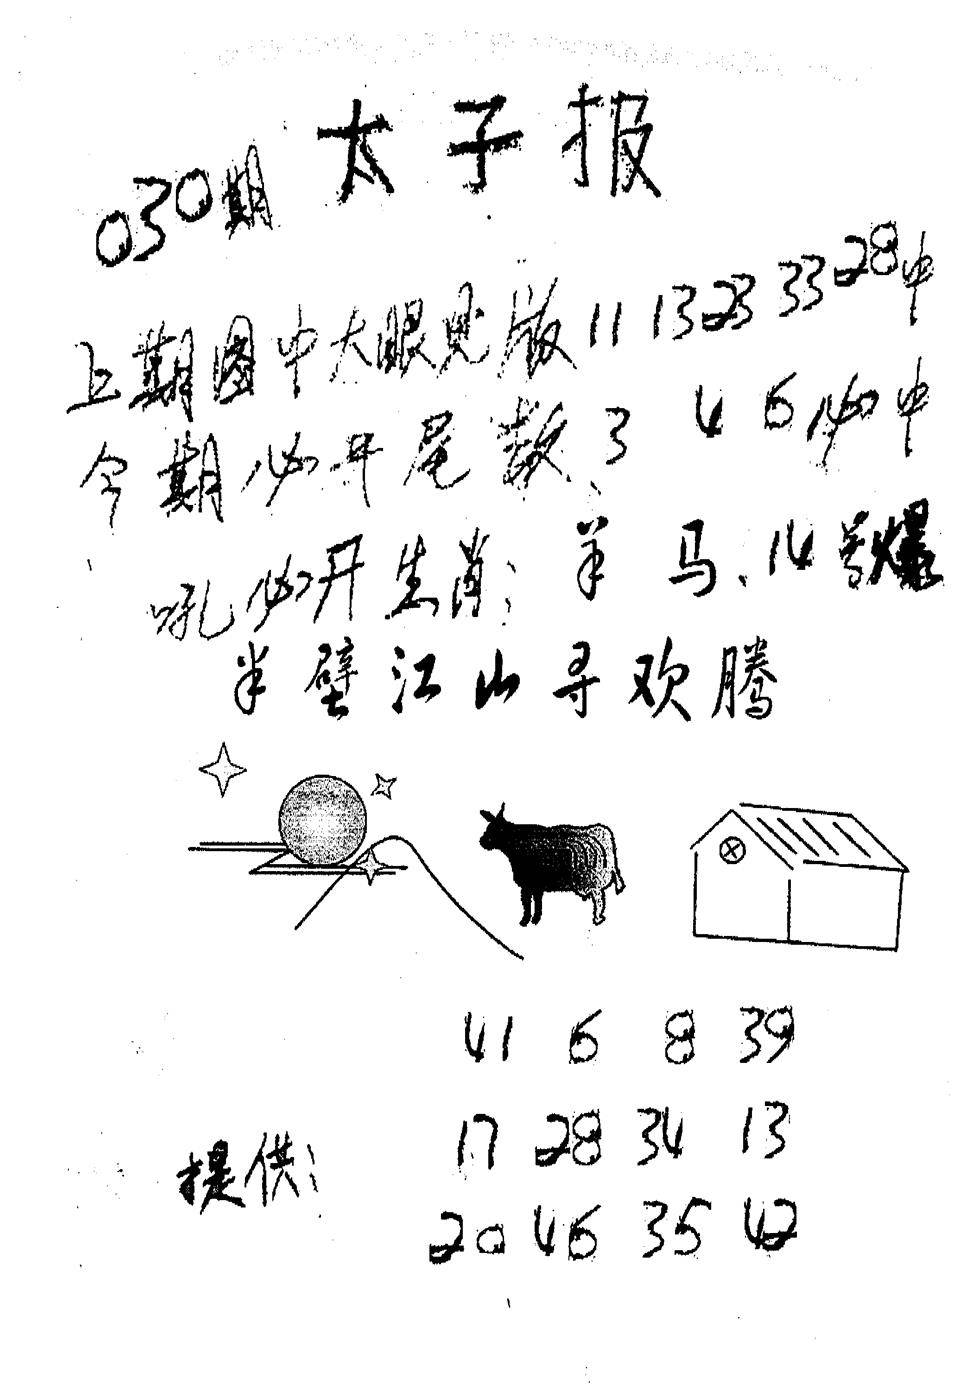 太子报
030期
上期图中大眼见版11 13 23 33 28中
今期必开尾数3 4 6必中
吼必开生肖:羊 马、14号爆
半壁江山寻欢腾
41 6 8 39
提供: 17 28 34 13
20 46 35 42